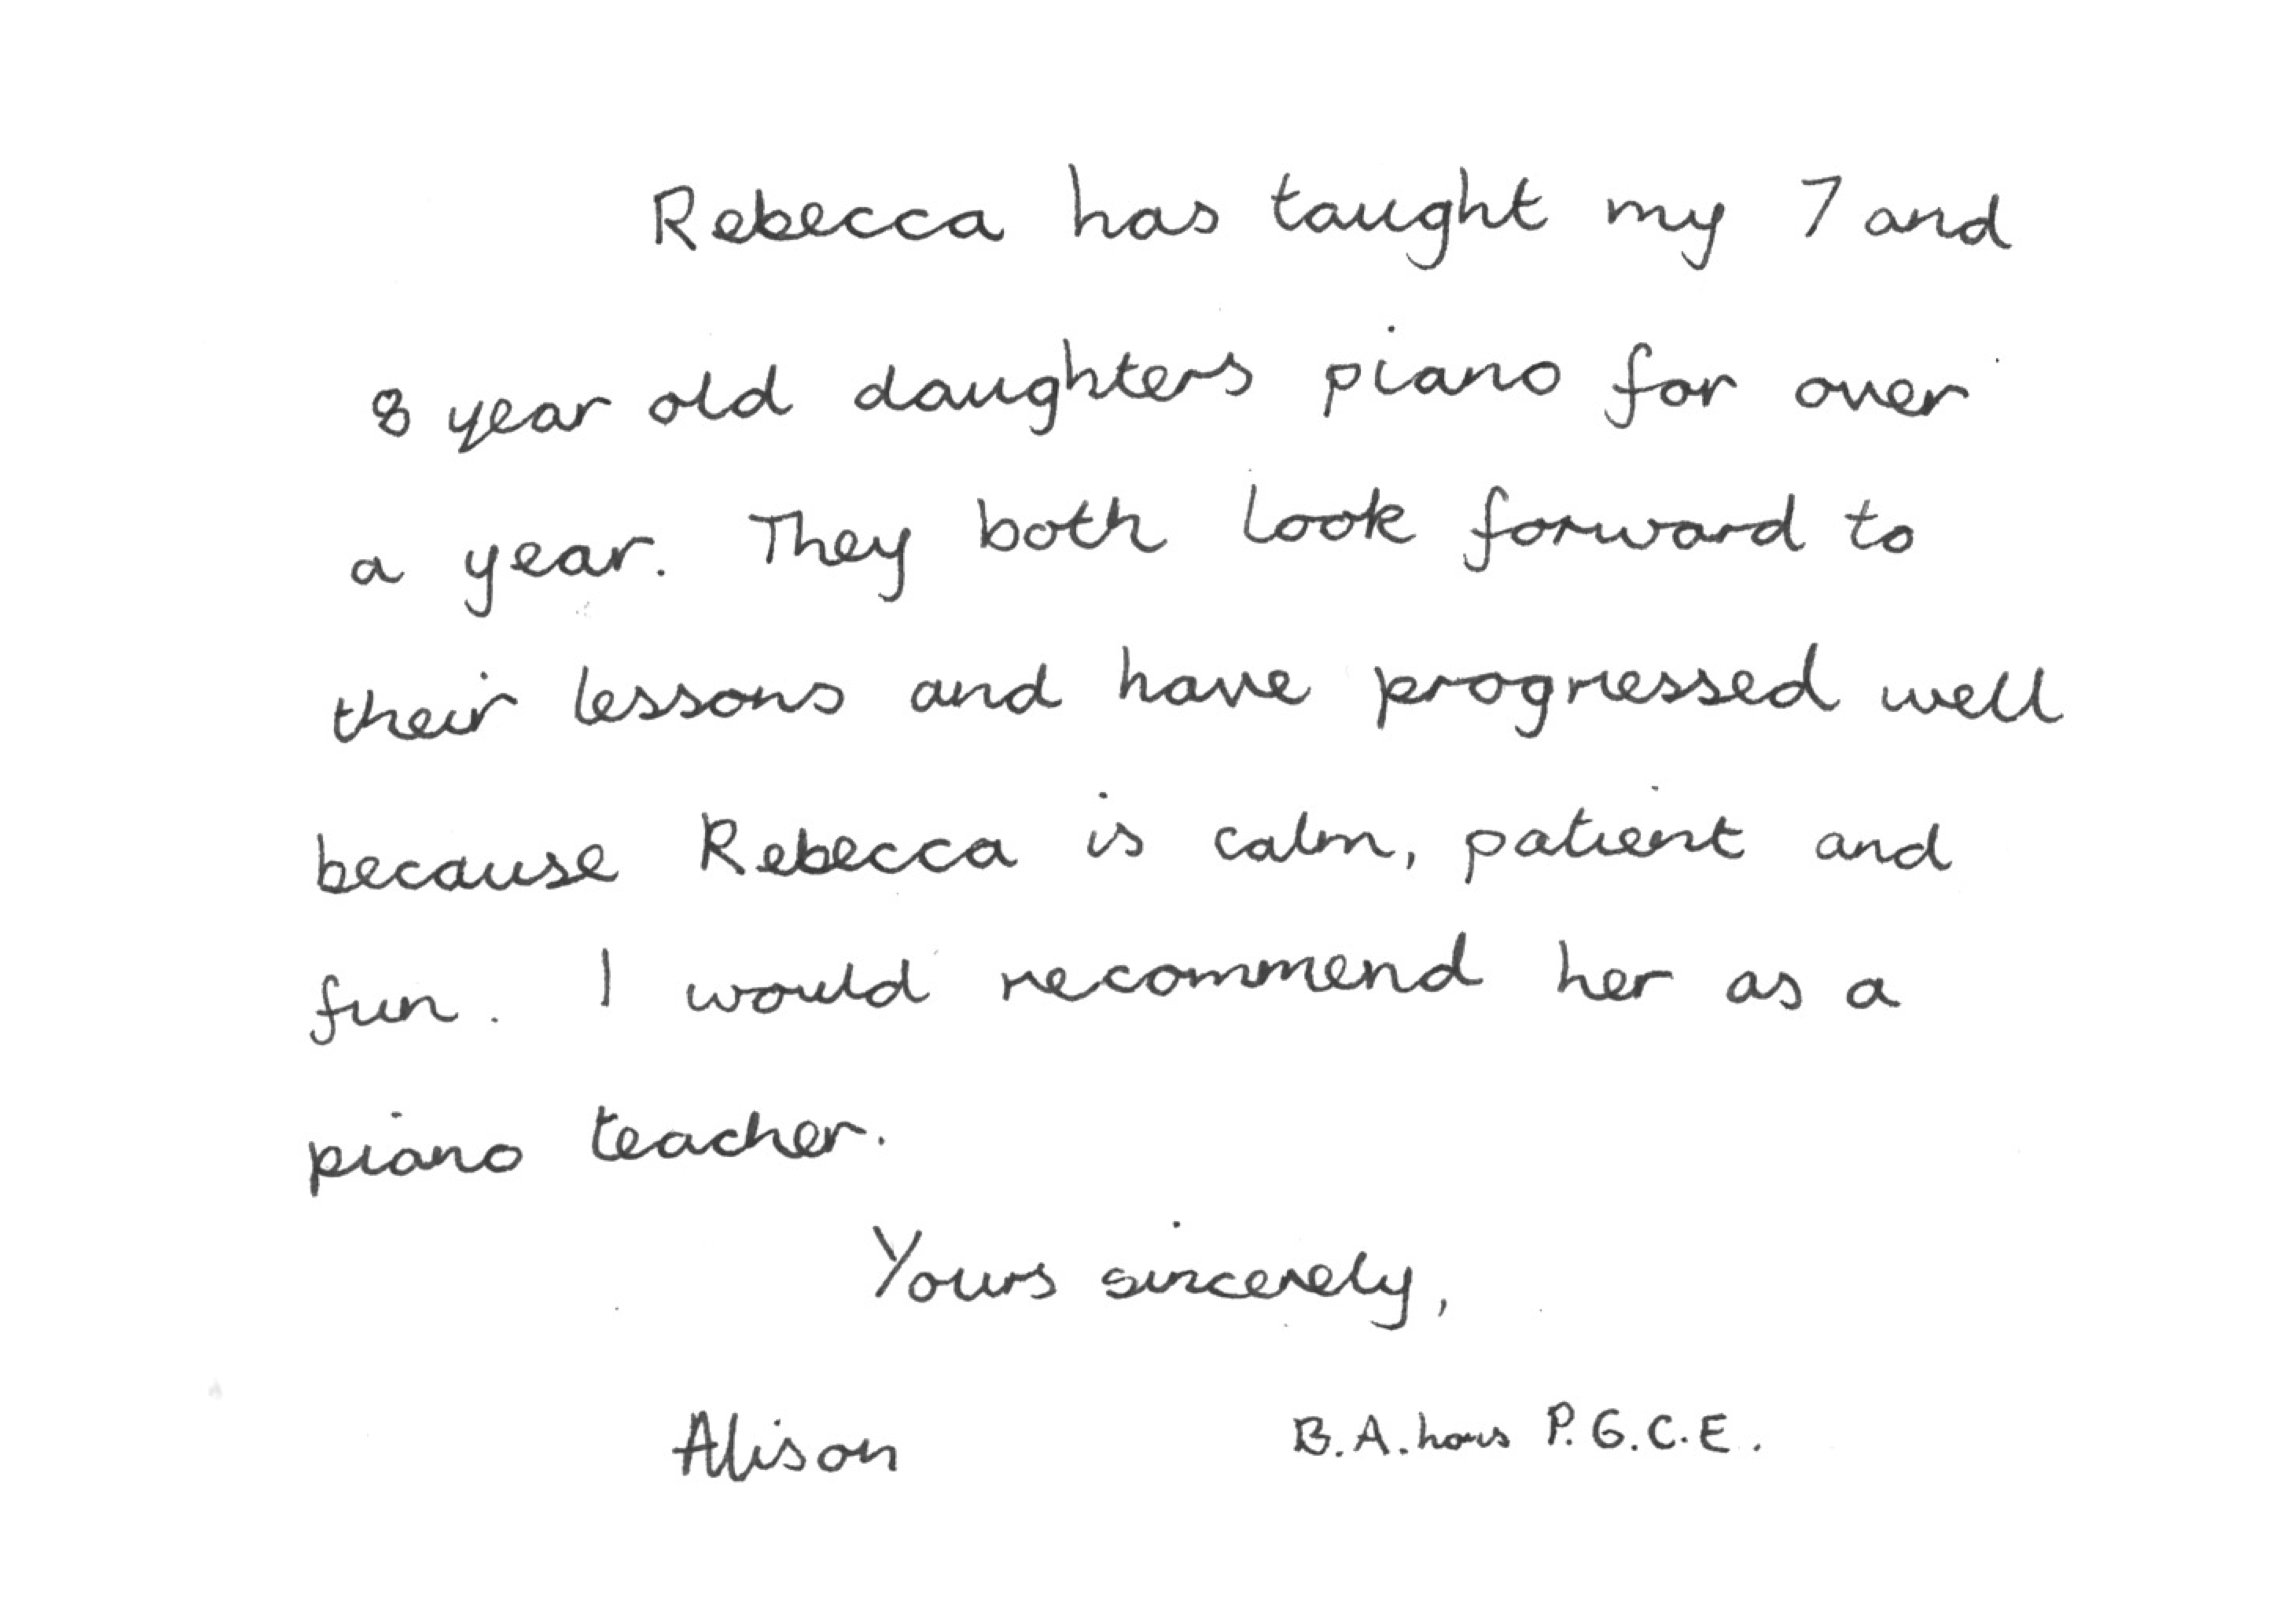 Rebecca has taught my 7 and
8 year old daughters piano for over
a year. They both look forward to
their lessons and have progressed well
because Rebecca is calm, patient and
fun. I would recommend her as a
piano teacher.
Yours sincerely,
Alison B.A. hons P.G.C.E.